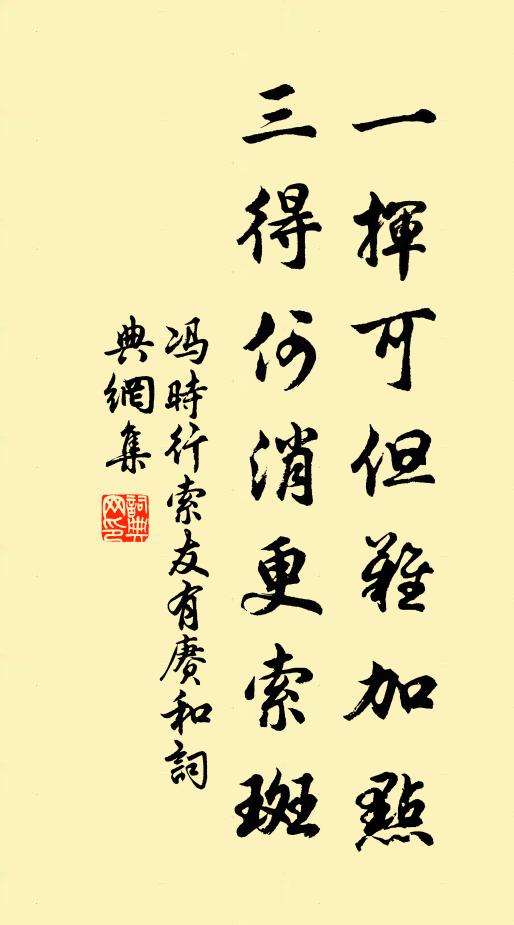 一揮可但難加點
三得何消更索斑
冯時行索友有賡和詞
典網集
詞典網印